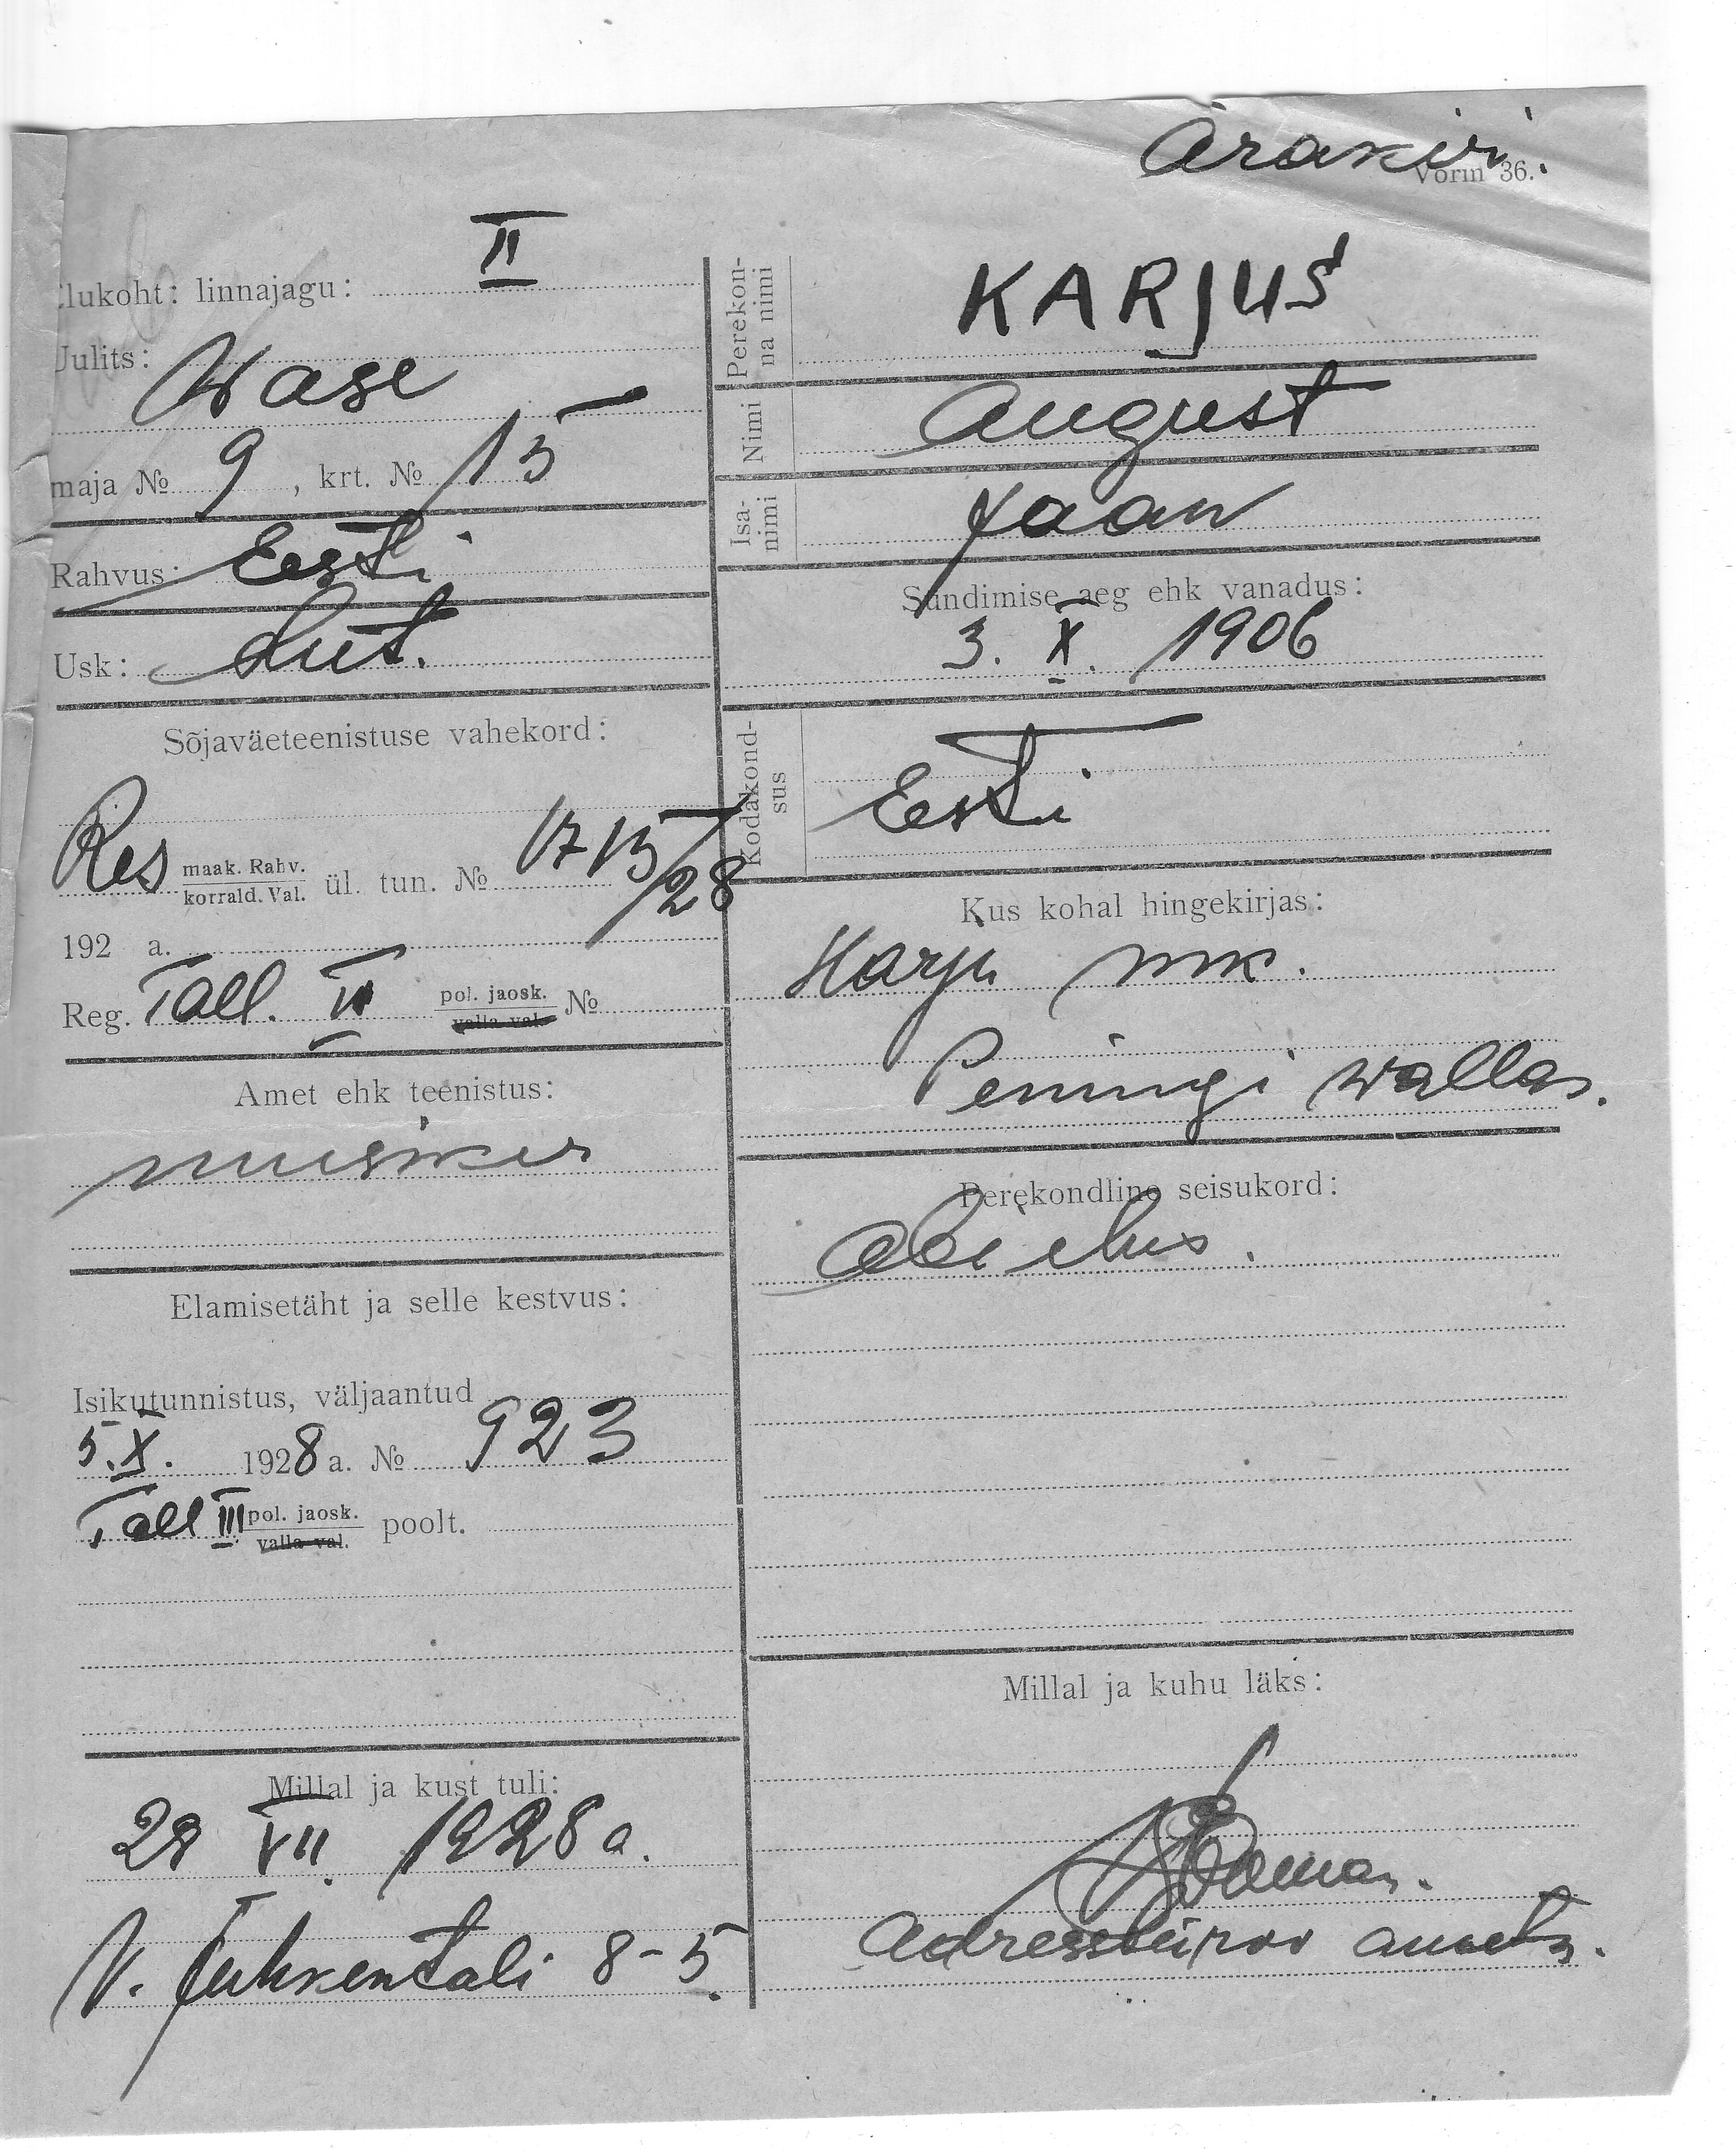 Ärakiri.
Vorm 36.
Elukoht: linnajagu: II
Uulits: Wase
maja № 9, krt. № 15
Rahvus: Eesti
Usk: Lut.
Sõjaväeteenistuse vahekord:
Res maak. Rahv. korrald. Val. ül. tun. № 1715/28
192 a.
Reg. Tall. VI pol. jaosk. valla val. №
Amet ehk teenistus:
muusiker
Elamisetäht ja selle kestvus:
Isikutunnistus, väljaantud
5. X. 1928 a. № 923
Tall III pol. jaosk. valla val. poolt.
Millal ja kust tuli:
28 VII. 1928 a.
V. Juhkentali 8-5.
Perekonna nimi KARJUS
Nimi August
Isanimi Jaan
Sündimise aeg ehk vanadus:
3. X. 1906
Kodakondsus Eesti
Kus kohal hingekirjas:
Harju mk.
Peningi wallas.
Perekondline seisukord:
abielus.
Millal ja kuhu läks:
Adressbüroo ametn.